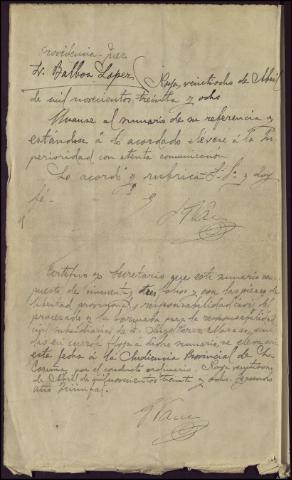 Providencia Juez
Sr. Balboa Lopez / Noya, veintiocho de Abril
de mil novecientos treinta y ocho
Unanse al sumario de su referencia y
estándose á lo acordado elevese á la Su
perioridad con atenta comunicacion
Lo acordó y rubrica S.Sª. y doy
fé.
Certifico yo Secretario que este sumario com
puesto de cincuenta y tres folios y con las piezas de
libertad provisional y responsabilidad civil del
procesado y la formada para la responsabilidad
civil subsidiaria de D.
en cuerda floja a dicho sumario, se eleva con
esta fecha á la Audiencia Provincial de La
Coruña, por el conducto ordinario. Noya veintiocho
de Abril de mil novecientos treinta y ocho. Segundo
año triunfal.